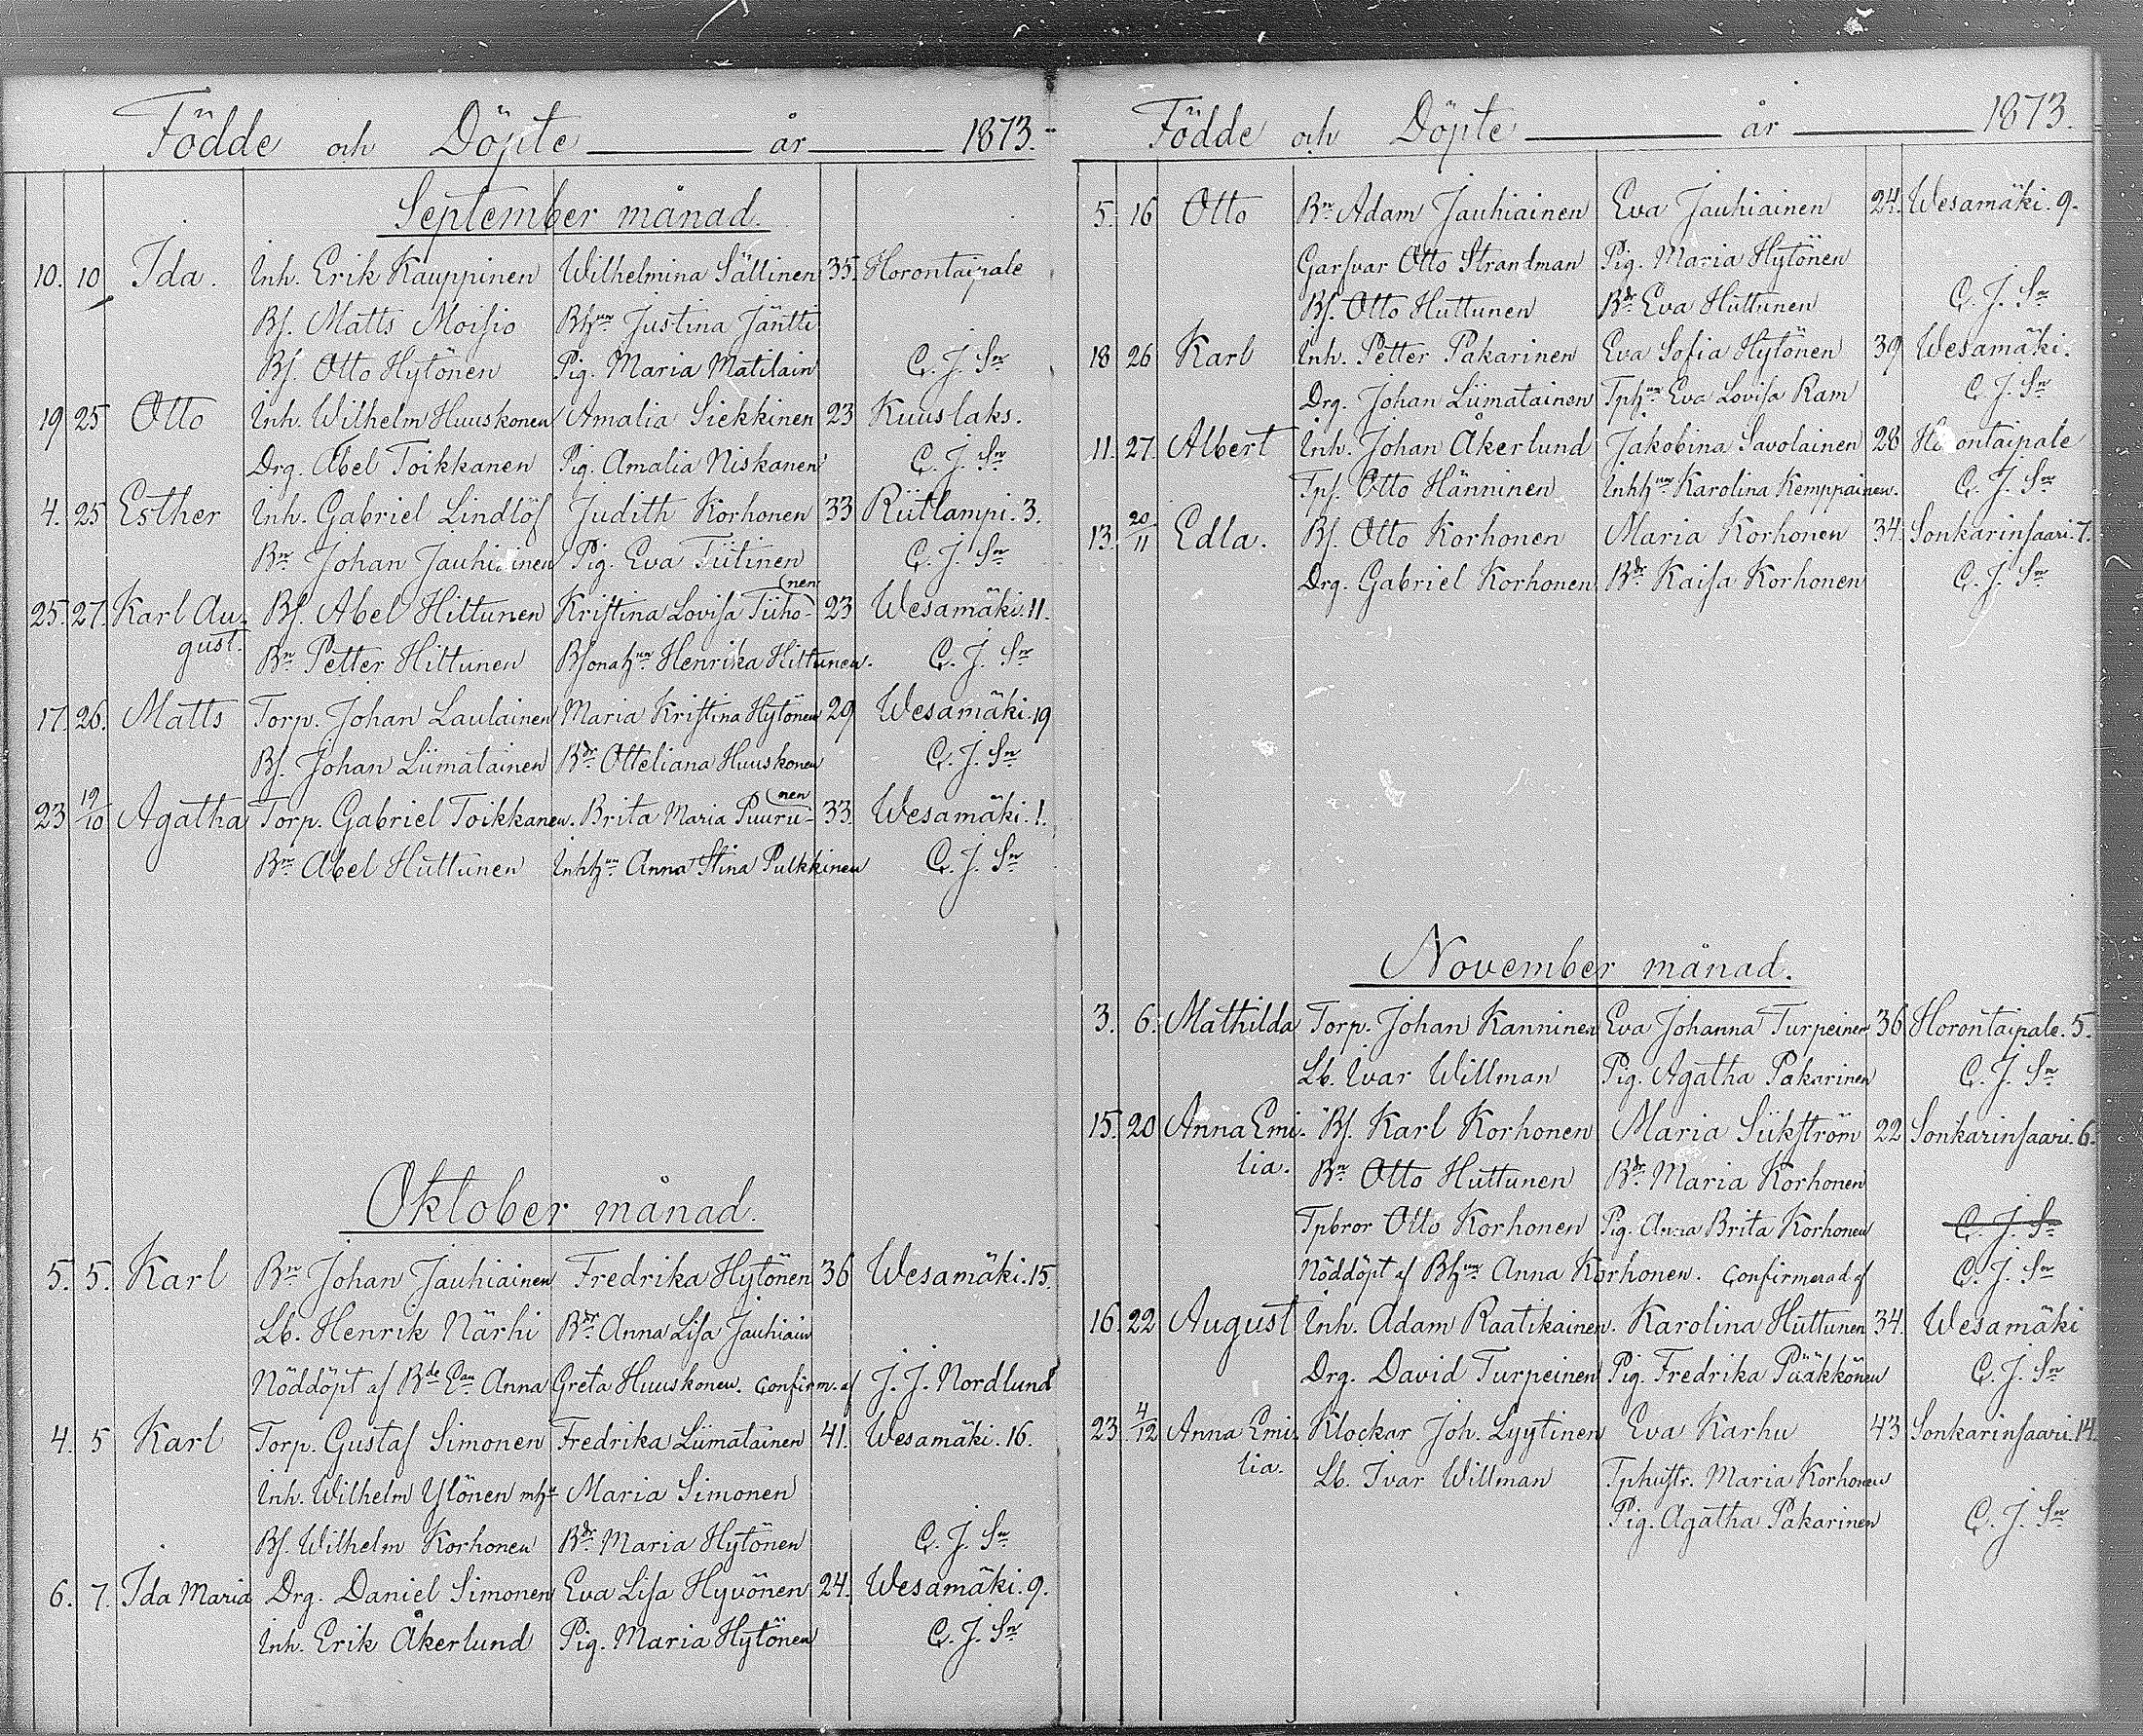 Födde och Döpte år 1873.
September månad.
10. 10 Ida. Inh. Erik Kauppinen Wilhelmina Sällinen 35. Horontaipale
Bs. Matts Moisio Bhn Justina Jäntti
Bs. Otto Hytönen Pig. Maria Matilain C. J. Sn
19 25 Otto Inh. Wilhelm Huuskonen Amalia Siekkinen 23 Kuuslaks.
Drg. Abel Toikkanen Pig. Amalia Niskanen C. J. Sn
4. 25 Esther Inh. Gabriel Lindlöf Judith Korhonen 33 Riitlampi. 3.
Bn Johan Jauhiainen Pig. Eva Tiitinen C. J. Sn
(nen
25. 27. Karl Au- Bs. Abel Hiltunen Kristina Lovisa Tiiho- 23 Wesamäki. 11.
gust. Bn Petter Hiltunen Bsonahn Henrika Hiltunen. C. J. Sn
17. 26. Matts Torp. Johan Laulainen Maria Kristina Hytönen 29 Wesamäki. 19
Bs. Johan Liimatainen Bdr Otteliana Huuskonen C. J. Sn
(nen
23 19/10 Agatha Torp. Gabriel Toikkanen. Brita Maria Puuru- 33. Wesamäki. 1.
Bn Abel Huttunen Inhhn Anna Stina Pulkkinen C. J. Sn
Oktober månad.
5. 5. Karl Bn Johan Jauhiainen Fredrika Hytönen 36 Wesamäki. 15.
Lb. Henrik Närhi Bdr Anna Lisa Jauhiain
Nöddöpt af Bde Ean Anna Greta Huuskonen. Confirm. af J. J. Nordlund
4. 5 Karl Torp. Gustaf Simonen Fredrika Liimatainen 41. Wesamäki. 16.
Inh. Wilhelm Ylönen mhn Maria Simonen
Bs. Wilhelm Korhonen Bdr Maria Hytönen C. J. Sn
6. 7. Ida Maria Drg. Daniel Simonen Eva Lisa Hyvönen 24. Wesamäki. 9.
Inh. Erik Åkerlund Pig. Maria Hytönen C. J. Sn
Födde och Döpte år 1873.
5. 16 Otto Bn Adam Jauhiainen Eva Jauhiainen 24. Wesamäki. 9.
Garfvar Otto Strandman Pig. Maria Hytönen
Bs. Otto Huttunen Bdr Eva Huttunen C. J. Sn
18 26 Karl Inh. Petter Pakarinen Eva Sofia Hytönen 39 Wesamäki.
Drg. Johan Liimatainen Tphn Eva Lovisa Ram C. J. Sn
11. 27. Albert Inh. Johan Åkerlund Jakobina Savolainen 28 Horontaipale
Tps. Otto Hänninen Inhhn Karolina Kemppainen. C. J. Sn
13. 20/11 Edla. Bs. Otto Korhonen Maria Korhonen 34. Sonkarinsaari. 7.
Drg. Gabriel Korhonen Bdr Kaisa Korhonen C. J. Sn
November månad.
3. 6. Mathilda Torp. Johan Kanninen Eva Johanna Turpeinen 36 Horontaipale. 5.
Lb. Ivar Willman Pig. Agatha Pakarinen C. J. Sn
15. 20 Anna Emi- Bs. Karl Korhonen Maria Siikström 22 Sonkarinsaari. 6.
lia. Bn Otto Huttunen Bdr Maria Korhonen
Tpbror Otto Korhonen Pig. Anna Brita Korhonen C. J. Sn
Nöddöpt af Bhn Anna Korhonen. Confirmerad af C. J. Sn
16. 22 August Inh. Adam Raatikainen. Karolina Huttunen 34. Wesamäki
Drg. David Turpeinen Pig. Fredrika Pääkkönen C. J. Sn
23. 4/12 Anna Emi- Klockar Joh. Lyytinen Eva Karhu 43 Sonkarinsaari. 14.
lia. Lb. Ivar Willman Tphustr. Maria Korhonen
Pig. Agatha Pakarinen C. J. Sn